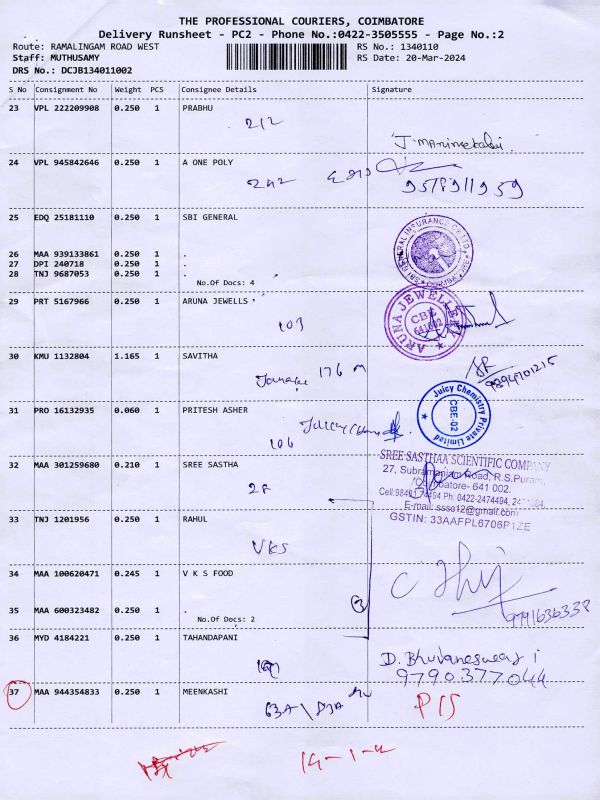 THE PROFESSIONAL COURIERS, COIMBATORE
Delivery Runsheet - PC2 - Phone No.:0422-3505555 - Page No.:2
Route: RAMALINGAM ROAD WEST
RS No.: 1340110
Staff: MUTHUSAMY
RS Date: 20-Mar-2024
DRS No.: DCJB134011002
S No Consignment No Weight PCS Consignee Details Signature
23 VPL 222209908 0.250 1 PRABHU
212
J. Manimekalai
24 VPL 945842646 0.250 1 A ONE POLY
242
9578911959
25 EDQ 25181110 0.250 1 SBI GENERAL
SBI GENERAL INSURANCE CO LTD
26 MAA 939133861 0.250 1 .
27 DPI 240718 0.250 1 .
28 TNJ 9687053 0.250 1 .
No.Of Docs: 4
29 PRT 5167966 0.250 1 ARUNA JEWELLS
103
ARUNA JEWELLERY
CBE
641002
30 KMU 1132804 1.165 1 SAVITHA
176 M
9894701215
31 PRO 16132935 0.060 1 PRITESH ASHER
106
Juicy Chemistry Private Limited
CBE-02
32 MAA 301259680 0.210 1 SREE SASTHA
28
SREE SASTHAA SCIENTIFIC COMPANY
27, Subramaniam Road, R.S.Puram,
Coimbatore- 641 002.
Ph. 0422-2474494,
E-mail: ssso12@gmail.com
GSTIN: 33AAFPL6706P1ZE
33 TNJ 1201956 0.250 1 RAHUL
VKS
34 MAA 100620471 0.245 1 V K S FOOD
35 MAA 600323482 0.250 1 .
3
9791636338
No.Of Docs: 2
36 MYD 4184221 0.250 1 TAHANDAPANI
D. Bhuvaneswari
9790377044
37 MAA 944354833 0.250 1 MEENKASHI
63A
P15